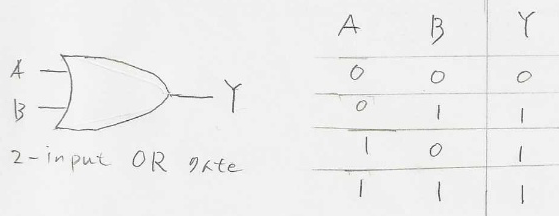 A
B
Y
2-input OR gate
A B Y
0 0 0
0 1 1
1 0 1
1 1 1